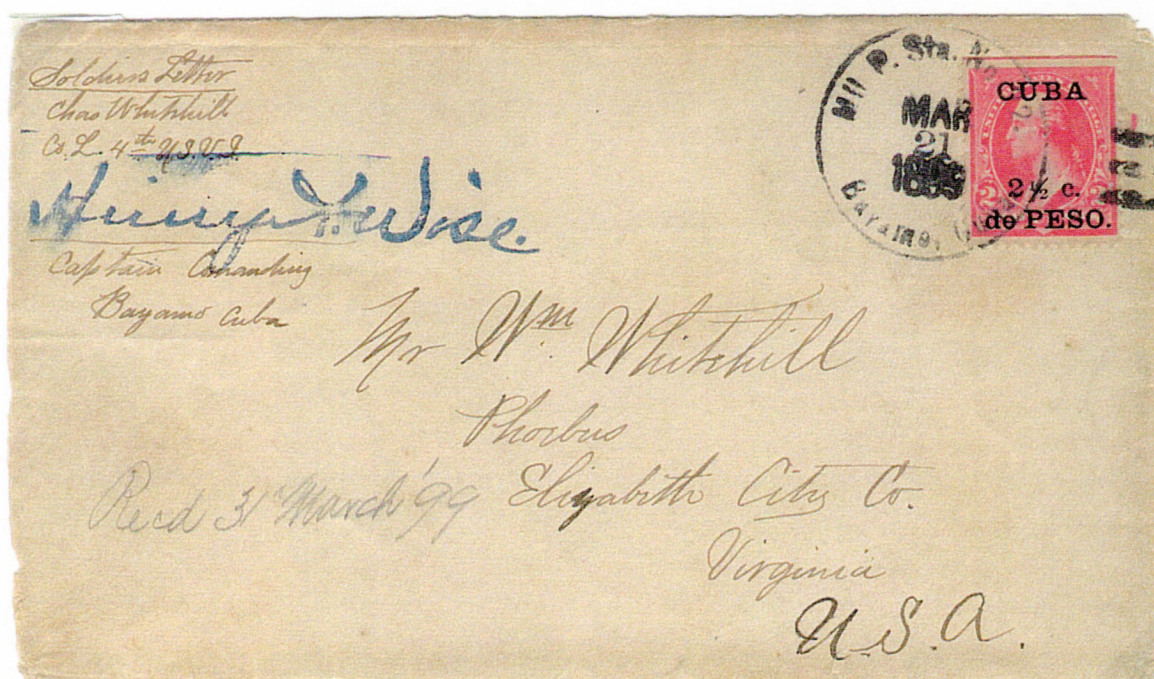 Soldiers Letter
Chas Whitehill
Co. L. 4th U.S.V.I.
Henry Wise.
Captain Comanding
Bayamo Cuba
Mil P. Sta. No.
MAR
21
1899
Bayamo,
CUBA
2 ½ c.
de PESO.
Mr Wm Whitehill
Phoebus
Elizabeth City Co.
Virginia
U.S.A.
Recd 31 March '99